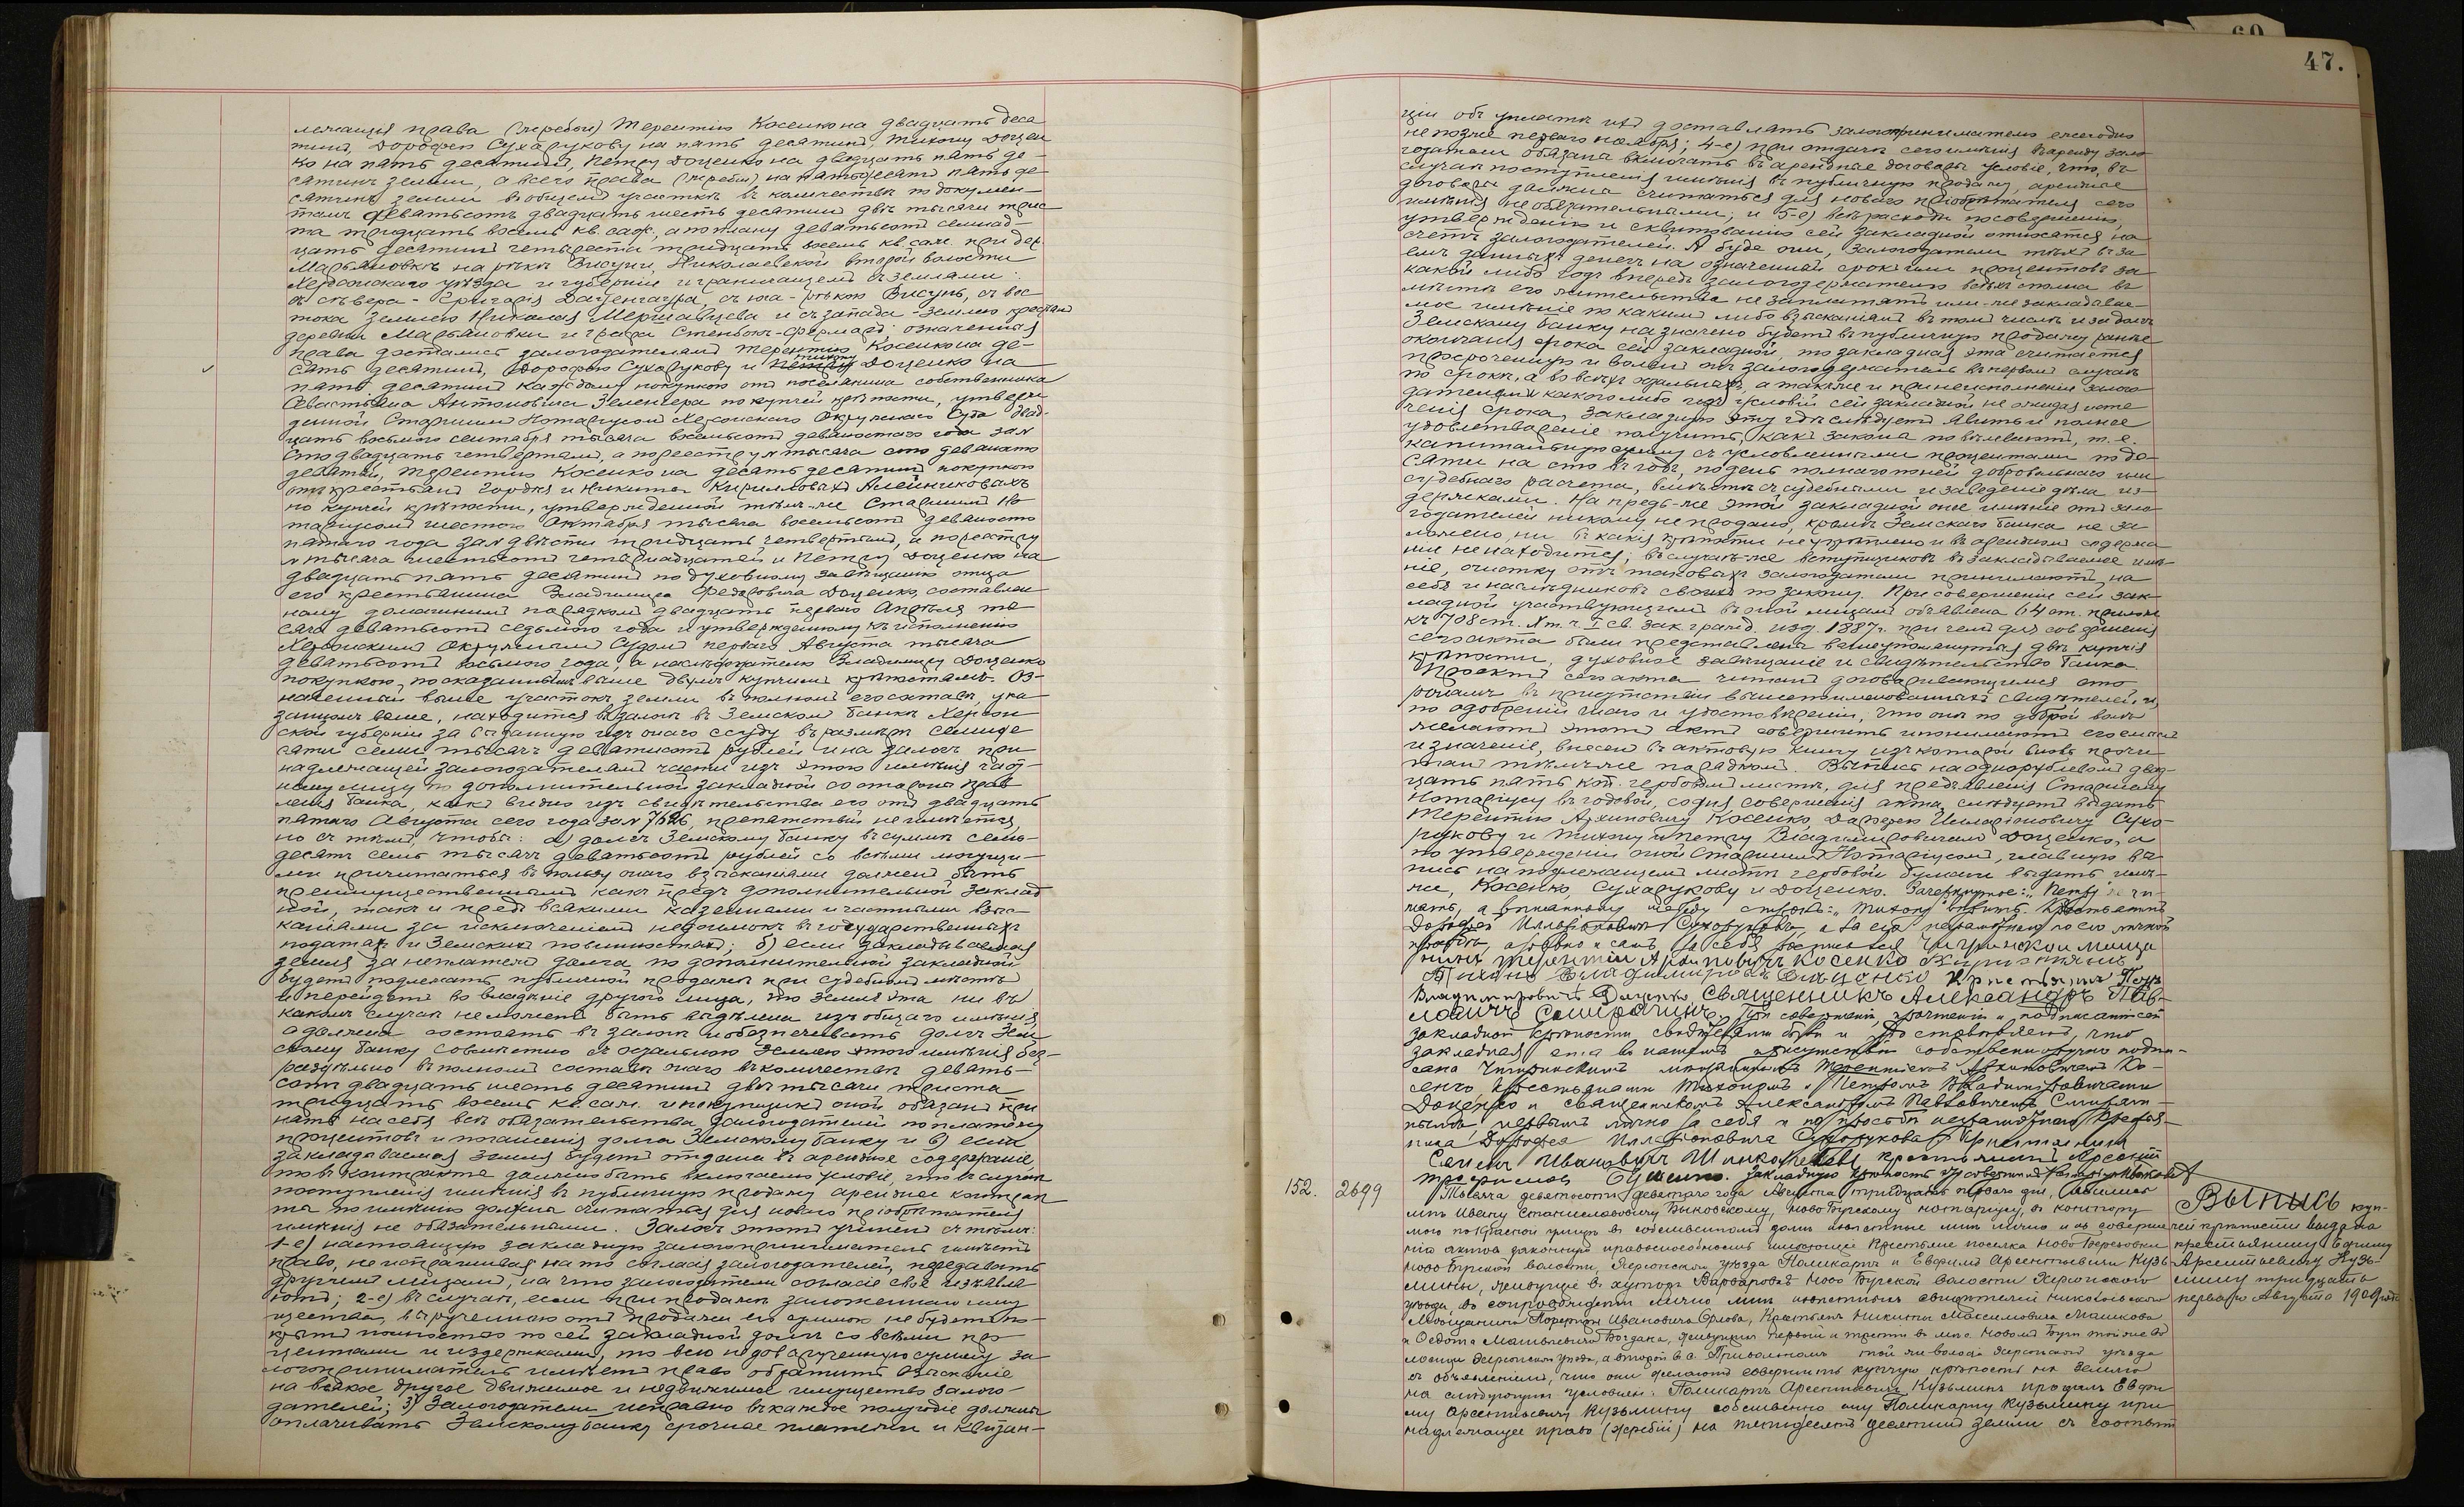 лежащія права (жребои) Терентію Косенко на двадцать деся
тинъ, Дорофею Сухарукову на пять десятинъ, Тихону Доцен
ко на пять десятинъ, Петру Доценко на двадцать пять де-
сятинъ земли, а всего права (жребіи) на пятьдесятъ пять де
сятинъ земли въ общемъ участкѣ въ количествѣ по докумен-
тамъ девятьсотъ двадцать шесть десятинъ двѣ тысячи трис
та тридцать восемь кв. саж., а по плану девятьсотъ семнад
цать десятинъ четыреста тридцать восемь кв. саж. при дер.
Марьяновкѣ на рѣкѣ Висуни, Николаевской второй волости
Херсонскаго уѣзда и губерніи и граничащемъ съ землями:
съ сѣвера - Григорія Даценгауфа, съ юга - рѣкою Висунь, съ вос
тока землею Николая Мержавцева и съ запада - землею крестьян
деревни Марьяновки и графа Стенбокъ-Фермаръ: означенныя
права достались залогодателямъ Терентію Косенко на де-
Тихону
сять десятинъ, Дорофею Сухарукову и Петру Доценко на
пять десятинъ каждому покупкою отъ поселянина собственника
Севастьяна Антоновича Зеленгера по купчей крѣпости, утверж
денной Старшимъ Нотаріусомъ Херсонскаго Окружнаго Суда двад-
цать восьмого сентября тысяча восемьсотъ девяностаго года за №
сто двадцать четвертымъ, а по реестру № тысяча сто девяносто
девятый, Терентію Косенко на десять десятинъ покупкою
отъ крестьянъ Гордѣя и Никиты Кирилловыхъ Алейниковыхъ
по купчей крѣпости, утвержденной тѣмъ-же Старшимъ Но
таріусомъ шестого Октября тысяча восемьсотъ девяносто
пятаго года за № двѣсти тридцать четвертымъ, а по реестру
№ тысяча шестьсотъ четырнадцатый и Петру Доценко на
двадцать пять десятинъ по духовному завѣщанію отца
его крестьянина Владиміра Федоровича Доценко, составлен
ному домашнимъ порядкомъ двадцать перваго Апрѣля ты
сяча девятьсотъ седьмого года и утвержденному къ исполненію
Херсонскимъ Окружнымъ Судомъ перваго Августа тысяча
девятьсотъ восьмого года, а наслѣдодателю Владиміру Доценко
покупкою по указаннымъ выше двумъ купчимъ крѣпостямъ. Оз-
наченный выше участокъ земли въ полномъ его составѣ, ука
занномъ выше, находится въ залогѣ въ Земскомъ Банкѣ Херсон
ской губерніи за выданную изъ онаго ссуду въ размѣрѣ семиде
сяти семи тысячъ девятисотъ рублей и на залогъ при
надлежащей залогодателямъ части изъ этого имѣнія част-
ному лицу по дополнительной закладной со стороны Прав
ленія Банка, какъ видно изъ свидѣтельства его отъ двадцать
пятаго Августа сего года за № 7626, препятствій не имѣется
но съ тѣмъ, чтобы: а) долгъ Земскому Банку въ суммѣ семь-
десятъ семь тысячъ девятьсотъ рублей со всѣми могущи-
ми причитаться въ пользу онаго взысканіями долженъ быть
преимущественнымъ какъ предъ дополнительной заклад
ной, такъ и предъ всякими казенными и частными взыс-
каніями за исключеніемъ недоимокъ въ государственныхъ
податяхъ и Земскихъ повинностяхъ; б) если закладываемая
земля за неплатежъ долга по дополнительной закладной
будетъ подлежать публичной продажѣ при судебномъ мѣстѣ
и перейдетъ во владѣніе другого лица, то земля эта ни въ
какомъ случаѣ не можетъ быть выдѣлена изъ общаго имѣнія,
а должна состоять въ залогѣ и обезпечивать долгъ Зем
скому Банку совмѣстно съ остальною землею этого имѣнія без-
раздѣльно въ полномъ составѣ онаго въ количествѣ девять-
сотъ двадцать шесть десятинъ двѣ тысячи триста
тридцать восемь кв. саж. и покупщикъ оной обязанъ при
нять на себя всѣ обязательства залогодателей по платежу
процентовъ и погашенія долга Земскому Банку и в) если
закладываемая земля будетъ отдана въ арендное содержаніе,
то въ контрактѣ должно быть включаемо условіе, что въ случаѣ
поступленія имѣнія въ публичную продажу арендные контрак
ты по имѣнію должны считаться для новаго пріобрѣтателя
имѣнія не обязательными. Залогъ этотъ учиненъ съ тѣмъ:
1-е) настоящую закладную залогоприниматель имѣетъ
право, не испрашивая на то согласія залогодателей, передавать
другимъ лицамъ, на что залогодатели согласіе свое изъявля
ютъ; 2-е) въ случаѣ, если при продажѣ заложеннаго иму
щества, вырученною отъ продажи его суммою не будетъ по-
крытъ полностью по сей закладной долгъ со всѣми про-
центами и издержками, то всю недовырученную сумму за
логоприниматель имѣетъ право обратить взысканіе
на всякое другое движимое и недвижимое имущество залого-
дателей; 3) Залогодатели исправно въ каждое полугодіе должны
оплачивать Земскому Банку срочные платежи и квитан-
47.
ціи объ уплатѣ ихъ доставлять залогопринимателю ежегодно
не позже перваго ноября; 4-е) при отдачѣ сего имѣнія въ аренду зало
годатели обязаны включать въ арендные договоры условіе, что, въ
случаѣ поступленія имѣнія въ публичную продажу, арендные
договоры должны считаться для новаго пріобрѣтателя сего
имѣнія не обязательными; и 5-е) всѣ расходы по совершенію,
утвержденію и сквитованію сей закладной относятся на
счетъ залогодателей. А буде они, залогодатели тѣхъ въ за
емъ данныхъ денегъ на означенный срокъ или процентовъ за
какой либо годъ впередъ залогодержателю всѣхъ сполна въ
мѣстѣ его жительства не заплатятъ или-же закладывае-
мое имѣніе по какимъ либо взысканіямъ въ томъ числѣ и за долгъ
Земскому Банку назначено будетъ въ публичную продажу ранѣе
окончанія срока сей закладной, то закладная эта считается
просроченною и воленъ онъ залогодержатель въ первомъ случаѣ
по срокѣ, а во всѣхъ остальныхъ, а также и при неисполненіи залого
дателями какого либо изъ условій сей закладной не ожидая исте
ченія срока, закладную эту гдѣ слѣдуетъ явить и полное
удовлетвореніе получить, какъ законы повелѣваютъ, т. е.
капитальную сумму съ условленными процентами по де-
сяти на сто въ годъ, по день полнаго по ней добровольнаго или
судебнаго расчета, вмѣстѣ съ судебными и за веденіе дѣла из-
держками. На предъ-же этой закладной оное имѣніе отъ зало
годателей никому не продано, кромѣ Земскаго Банка не за
ложено, ни въ какія крѣпости не укрѣплено и въ арендномъ содержа
ніи не находится; въ случаѣ-же вступщиковъ въ закладываемое имѣ-
ніе, очистку отъ таковыхъ залогодатели принимаютъ на
себя и наслѣдниковъ своихъ по закону. При совершеніи сей зак-
ладной участвующимъ въ оной лицамъ объявлена 64 ст. прилож
къ 708 ст. X т. ч. I св. зак. гражд. изд. 1887 г. при чемъ для совершенія
сего акта были представлены вышеупомянутыя двѣ купчія
крѣпости, духовное завѣщаніе и свидѣтельство Банка.
Проектъ сего акта читанъ договаривающимся сто
ронамъ въ присутствіи вышепоименованныхъ свидѣтелей, и,
по одобреніи онаго и удостовѣреніи, что они по доброй волѣ
желаютъ этотъ актъ совершить и понимаютъ его смыслъ
и значеніе, внесенъ въ актовую книгу изъ которой вновь прочи
танъ тѣмъ-же порядкомъ. Выпись на однорублевомъ двад-
цать пять коп. гербовомъ листѣ, для предъявленія Старшему
Нотаріусу въ годовой, со дня совершенія акта, слѣдуетъ выдать
Терентію Архиповичу Косенко, Дорофею Илларіоновичу Сухо-
рукову и Тихону и Петру Владиміровичамъ Доценко, а
по утвержденіи оной Старшимъ Нотаріусомъ, главную вы
пись на подлежащемъ листѣ гербовой бумаги выдать имъ-
же, Косенко, Сухарукову и Доценко. Зачеркнутое: „Петру“ не чи-
тать, а вписанному между строкъ: „Тихону“ вѣрить. Крестьянинъ
Дорофей Илларіоновичъ Сухоруковъ, а за его неграмотнаго по его личной
просьбѣ, а равно и самъ за себя росписался Чигиринскій мѣща
нинъ Терентій Архиповичъ Косенко Крестьянинъ
Тихонъ Владиміровъ Доценко Крестьянинъ Петръ
Владиміровичъ Доценко, Священникъ Александръ Пав-
ловичъ При совершеніи, прочтеніи и подписаніи сей
закладной крѣпости свидѣтелями были и удостовѣряемъ, что
закладная сія въ нашемъ присутствіи собственноручно подпи-
сана Чигиринскимъ мѣщаниномъ Терентіемъ Архиповичемъ Ко-
сенко, крестьянами Тихономъ и Петромъ Владиміровичами
Доценко и священникомъ Александромъ Павловичемъ
первымъ лично за себя и по просьбѣ неграмотнаго крестья-
нина Дорофея Илларіоновича Сухорукова, Крестьянинъ
Семенъ Ивановичъ крестьянинъ Арсеній
закладную крѣпость
152. 2699
Тысяча девятьсотъ девятаго года Августа тридцать перваго дня, явились
мнѣ Ивану Станиславовичу Быковскому, Ново-Бугскому нотаріусу, въ контору
мою по Красной улицѣ въ собственномъ домѣ извѣстные мнѣ лично и къ соверше
нію актовъ законную правоспособность имѣющіе крестьяне поселка Ново-Березовки
Ново-Бугской волости, Херсонскаго уѣзда Поликарпъ и Евфимъ Арсентьевичи Кузь
мины, живущіе въ хуторѣ Варваровкѣ Ново-Бугской волости Херсонскаго
уѣзда, въ сопровожденіи лично мнѣ извѣстныхъ свидѣтелей Николаевскаго
Мѣщанина Порфирія Ивановича Орлова, Крестьянъ Никиты Максимовича Машкова
и Федота Матвѣевича Богдана, живущихъ первый и третій въ м-кѣ Новомъ Бугѣ той же во
лости Херсонскаго уѣзда, а второй въ с. Привольномъ той же волости Херсонскаго уѣзда
съ объявленіемъ, что они желаютъ совершить купчую крѣпость на землю
на слѣдующихъ условіяхъ: Поликарпъ Арсентьевичъ Кузьминъ продалъ Евфи
му Арсентьевичу Кузьмину собственно ему Поликарпу Кузьмину при
надлежащее право (жребій) на пятьдесятъ десятинъ земли съ состоят
Выпись куп-
чей крѣпости выдана
крестьянину Ефиму
Арсентьевичу Кузь-
мину тридцать
перваго Августа 1909 года